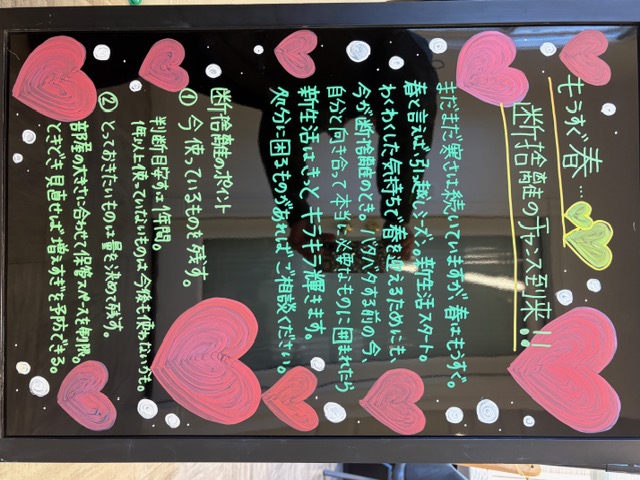 もうすぐ春…
断捨離のチャンス到来!!
まだまだ寒さは続いていますが、春はもうすぐ。
春と言えば、引越しシーズン。新生活スタート。
わくわくした気持ちで春を迎えるためにも、
今が断捨離のとき。バタバタする前の今、
自分と向き合って本当に必要なものに囲まれたら
新生活はきっとキラキラ輝きます。
処分に困るものがあればご相談ください。
断捨離のポイント
① 今使っているものを残す。
判断目安は1年間。
1年以上使っていないものは今後も使わないかも。
② とっておきたいものは量を決めて残す。
部屋の大きさに合わせて保管スペースを制限。
ときどき見直せば増えすぎを予防できる。